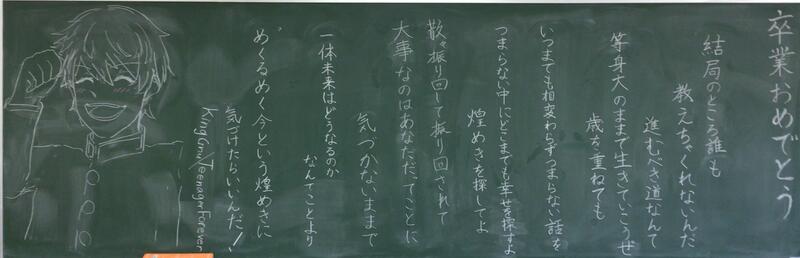 卒業おめでとう
結局のところ誰も
教えちゃくれないんだ
進むべき道なんて
等身大のままで生きていこうぜ
歳を重ねても
いつまでも相変わらずつまらない話を
つまらない中にどこまでも幸せを探すよ
煌めきを探してよ
散々振り回して振り回されて
大事なのはあなただってことに
気づかないままで
一体未来はどうなるのか
なんてことより
めくるめく今という煌めきに
気づけたらいいんだ！
King Gnu/Teenager Forever